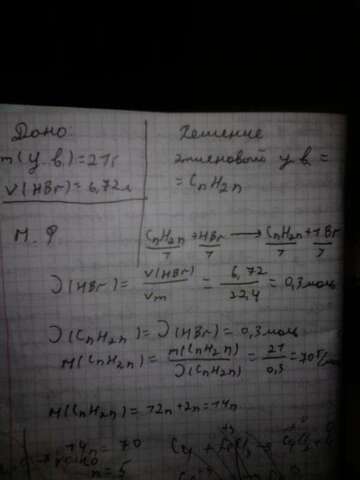 Дано:
m(у.в.)=21г
V(HBr)=6,72л
М.Ф.
Решение
этиленовый у.в. =
= CnH2n
CnH2n + HBr → CnH2n+1Br
1 1 1
ν(HBr) = V(HBr) / Vm = 6,72 / 22,4 = 0,3 моль
ν(CnH2n) = ν(HBr) = 0,3 моль
M(CnH2n) = m(CnH2n) / ν(CnH2n) = 21 / 0,3 = 70
M(CnH2n) = 12n + 2n = 14n
14n = 70
n = 5